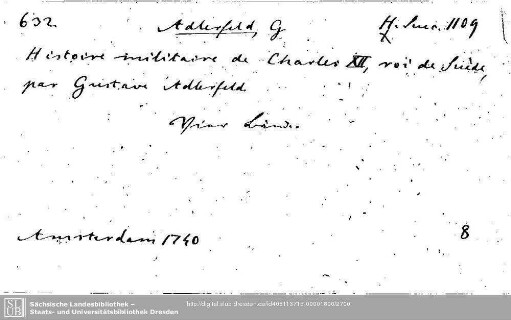 632. Adlerfeld, G H. Suec. 1109
Histoire militaire de Charles XII, roi de Suède,
par Gustave Adlerfeld
Vier Bände.
Amsterdam 1740 8
SLUB
Sächsische Landesbibliothek –
Staats- und Universitätsbibliothek Dresden